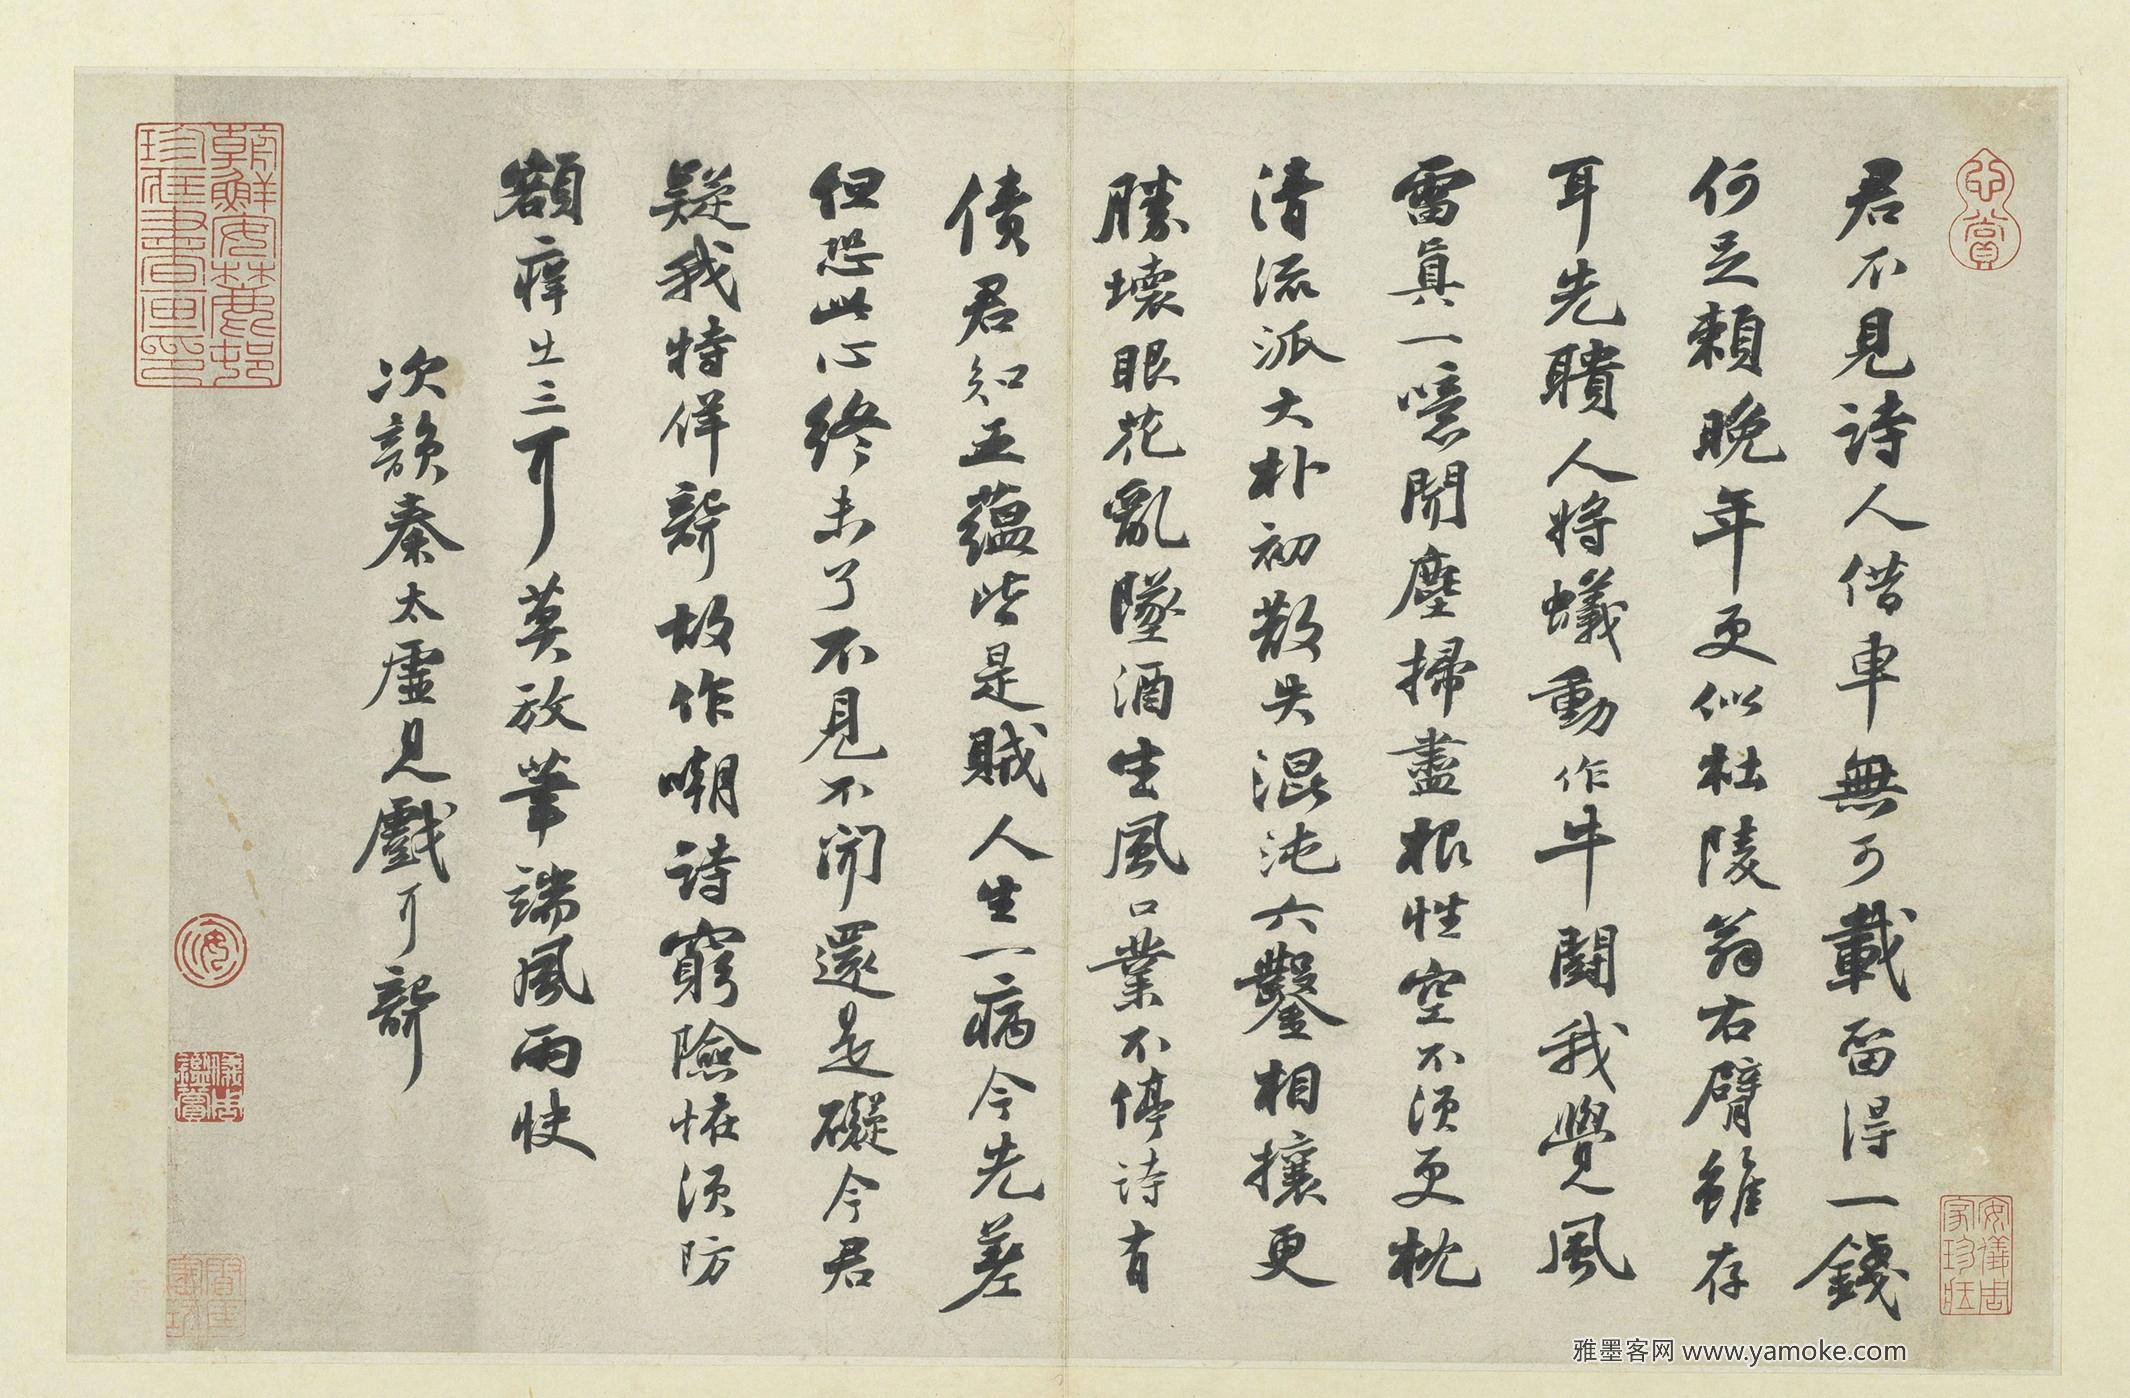 君不見詩人借車無可載留得一錢
何足賴晚年更似杜陵翁右臂雖存
耳先聵人將蟻動作牛鬪我覺風
雷真一噫聞塵掃盡根性空不須更枕
清流派大朴初散失混沌六鑿相攘更
勝壞眼花亂墜酒生風口業不停詩有
債君知五蘊皆是賊人生一病今先差
但恐此心終未了不見不聞還是礙今君
疑我特佯聾故作嘲詩窮險怪須防
額癢出三耳莫放筆端風雨快
次韻秦太虛見戲耳聾
朝鮮安麓邨
珍藏書畫印
心賞
安儀周
家珍藏
雅墨客网 www.yamoke.com